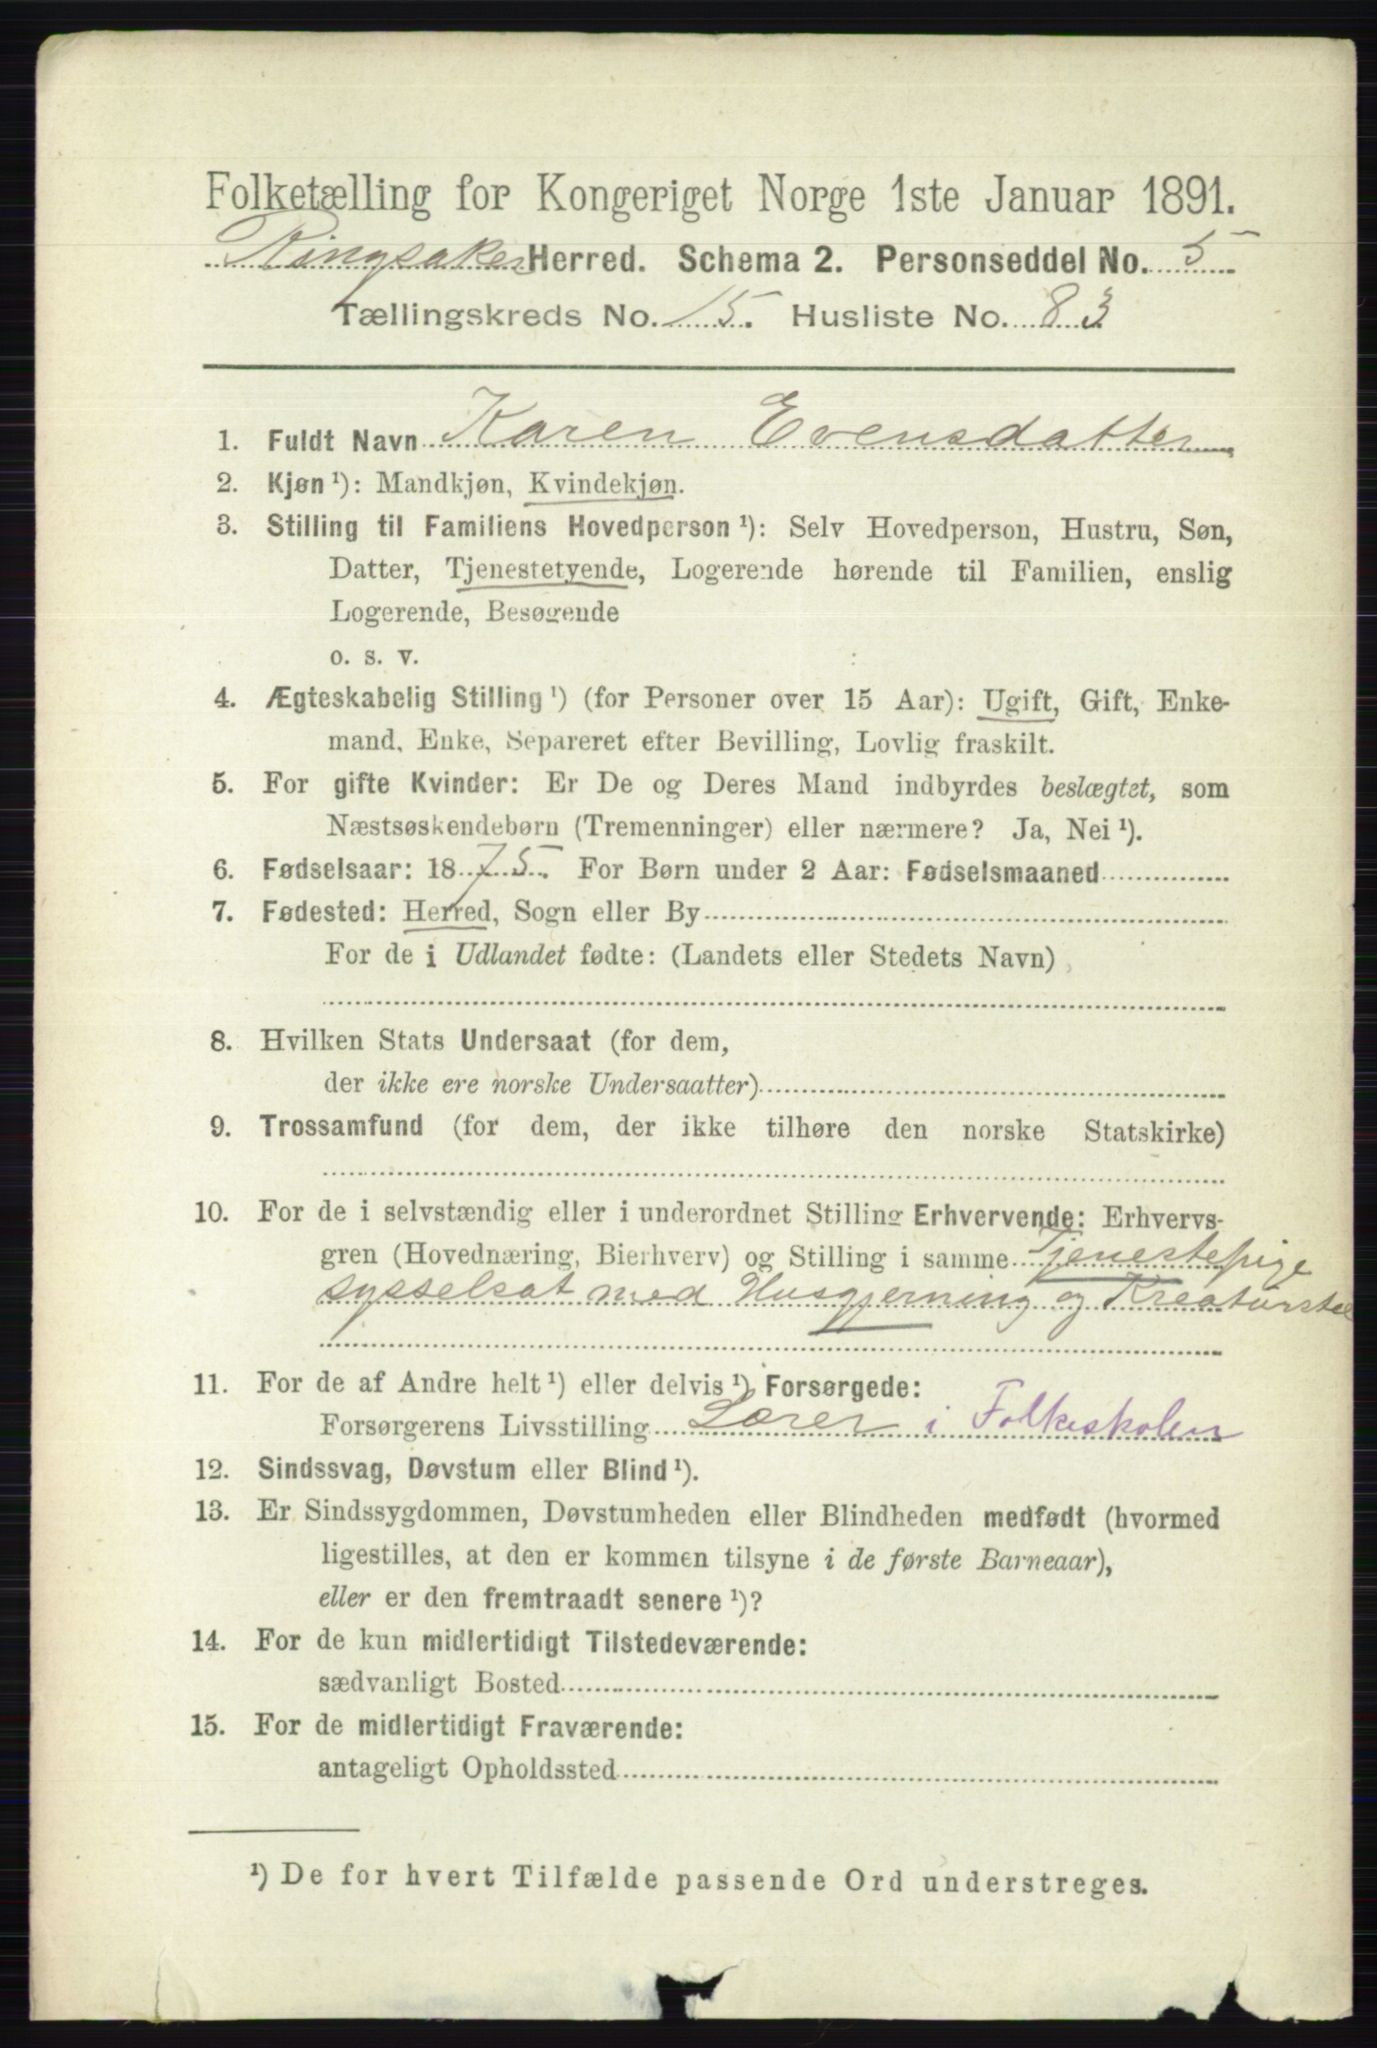 Folketælling for Kongeriget Norge 1ste Januar 1891.
Ringsaker Herred. Schema 2. Personseddel No. 5
Tællingskreds No. 15. Husliste No. 83
1. Fuldt Navn Karen Evensdatter
2. Kjøn ¹): Mandkjøn, Kvindekjøn.
3. Stilling til Familiens Hovedperson ¹): Selv Hovedperson, Hustru, Søn,
Datter, Tjenestetyende, Logerende hørende til Familien, enslig
Logerende, Besøgende
o. s. v.
4. Ægteskabelig Stilling ¹) (for Personer over 15 Aar): Ugift, Gift, Enke-
mand, Enke, Separeret efter Bevilling, Lovlig fraskilt.
5. For gifte Kvinder: Er De og Deres Mand indbyrdes beslægtet, som
Næstsøskendebørn (Tremenninger) eller nærmere? Ja, Nei ¹).
6. Fødselsaar: 1875. For Børn under 2 Aar: Fødselsmaaned
7. Fødested: Herred, Sogn eller By
For de i Udlandet fødte: (Landets eller Stedets Navn)
8. Hvilken Stats Undersaat (for dem,
der ikke ere norske Undersaatter)
9. Trossamfund (for dem, der ikke tilhøre den norske Statskirke)
10. For de i selvstændig eller i underordnet Stilling Erhvervende: Erhvervs-
gren (Hovednæring, Bierhverv) og Stilling i samme Tjenestepige
sysselsat med Husgjerning og Kreaturstel
11. For de af Andre helt ¹) eller delvis ¹) Forsørgede:
Forsørgerens Livsstilling Lærer i Folkeskolen
12. Sindssvag, Døvstum eller Blind ¹).
13. Er Sindssygdommen, Døvstumheden eller Blindheden medfødt (hvormed
ligestilles, at den er kommen tilsyne i de første Barneaar),
eller er den fremtraadt senere ¹)?
14. For de kun midlertidigt Tilstedeværende:
sædvanligt Bosted
15. For de midlertidigt Fraværende:
antageligt Opholdssted
¹) De for hvert Tilfælde passende Ord understreges.